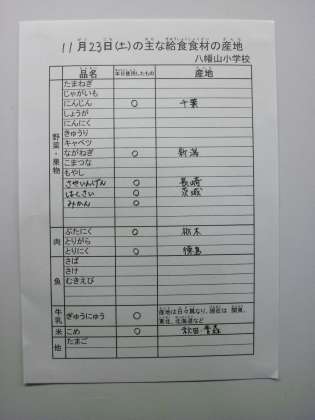 11月23日(土)の主な給食食材の産地
八幡山小学校
品名 本日使用したもの 産地
野菜・果物
たまねぎ
じゃがいも
にんじん ○ 千葉
しょうが
にんにく
きゅうり
キャベツ
ながねぎ ○ 新潟
こまつな
もやし
さやいんげん ○ 長崎
はくさい ○ 茨城
みかん ○
肉
ぶたにく ○ 栃木
とりがら
とりにく ○ 徳島
魚
さば
さけ
むきえび
牛乳 ぎゅうにゅう ○ 産地は日々異なり、現在は 関東、東北、北海道など
米 こめ ○ 秋田・青森
他 たまご